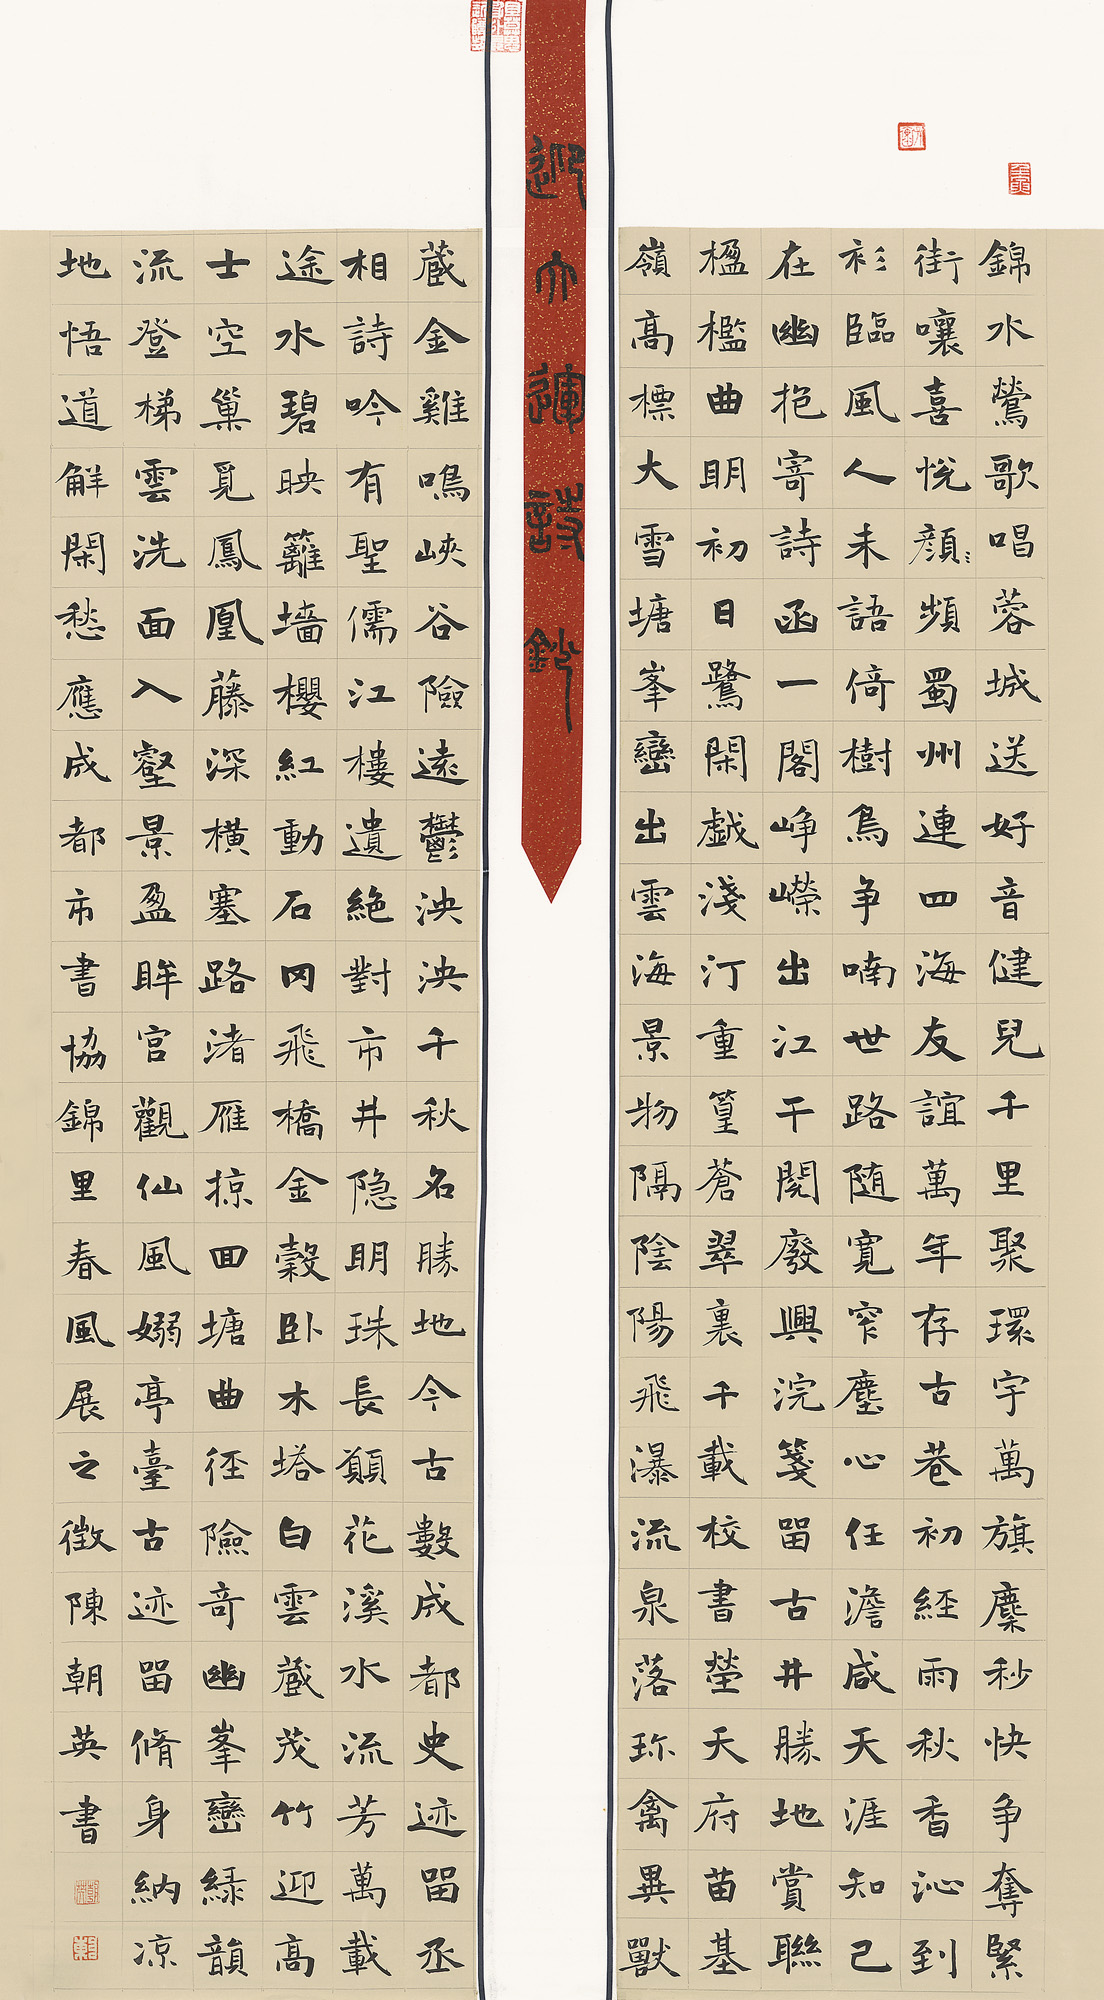 錦水鶯歌唱蓉城送好音健兒千里聚環宇萬旗麾秒快争奪緊
街嚷喜悦顔頻蜀州連四海友誼萬年存古巷初經雨秋香沁到
衫臨風人未語倚樹鳥争喃世路随寬窄塵心任澹咸天涯知己
在幽抱寄詩函一閣崢嶸出江干閲廢興浣箋留古井勝地賞聯
楹檻曲明初日鷺閑戯淺汀重篁蒼翠裏千載校書塋天府苗基
嶺高標大雪塘峯巒出雲海景物隔陰陽飛瀑流泉落珎禽異獸
迎大運詩鈔
藏金雞鳴峽谷險遠鬱泱泱千秋名勝地今古數成都史迹留丞
相詩吟有聖儒江樓遺絶對市井隐明珠長願花溪水流芳萬載
途水碧映籬墻櫻紅動石岡飛橋金穀卧木塔白雲藏茂竹迎高
士空巢覓鳳凰藤深横塞路渚雁掠回塘曲徑險奇幽峯巒緑韻
流登梯雲洗面入壑景盈眸宫觀仙風嫋亭臺古迹留脩身納凉
地悟道解閑愁應成都市書協錦里春風展之徵陳朝英書